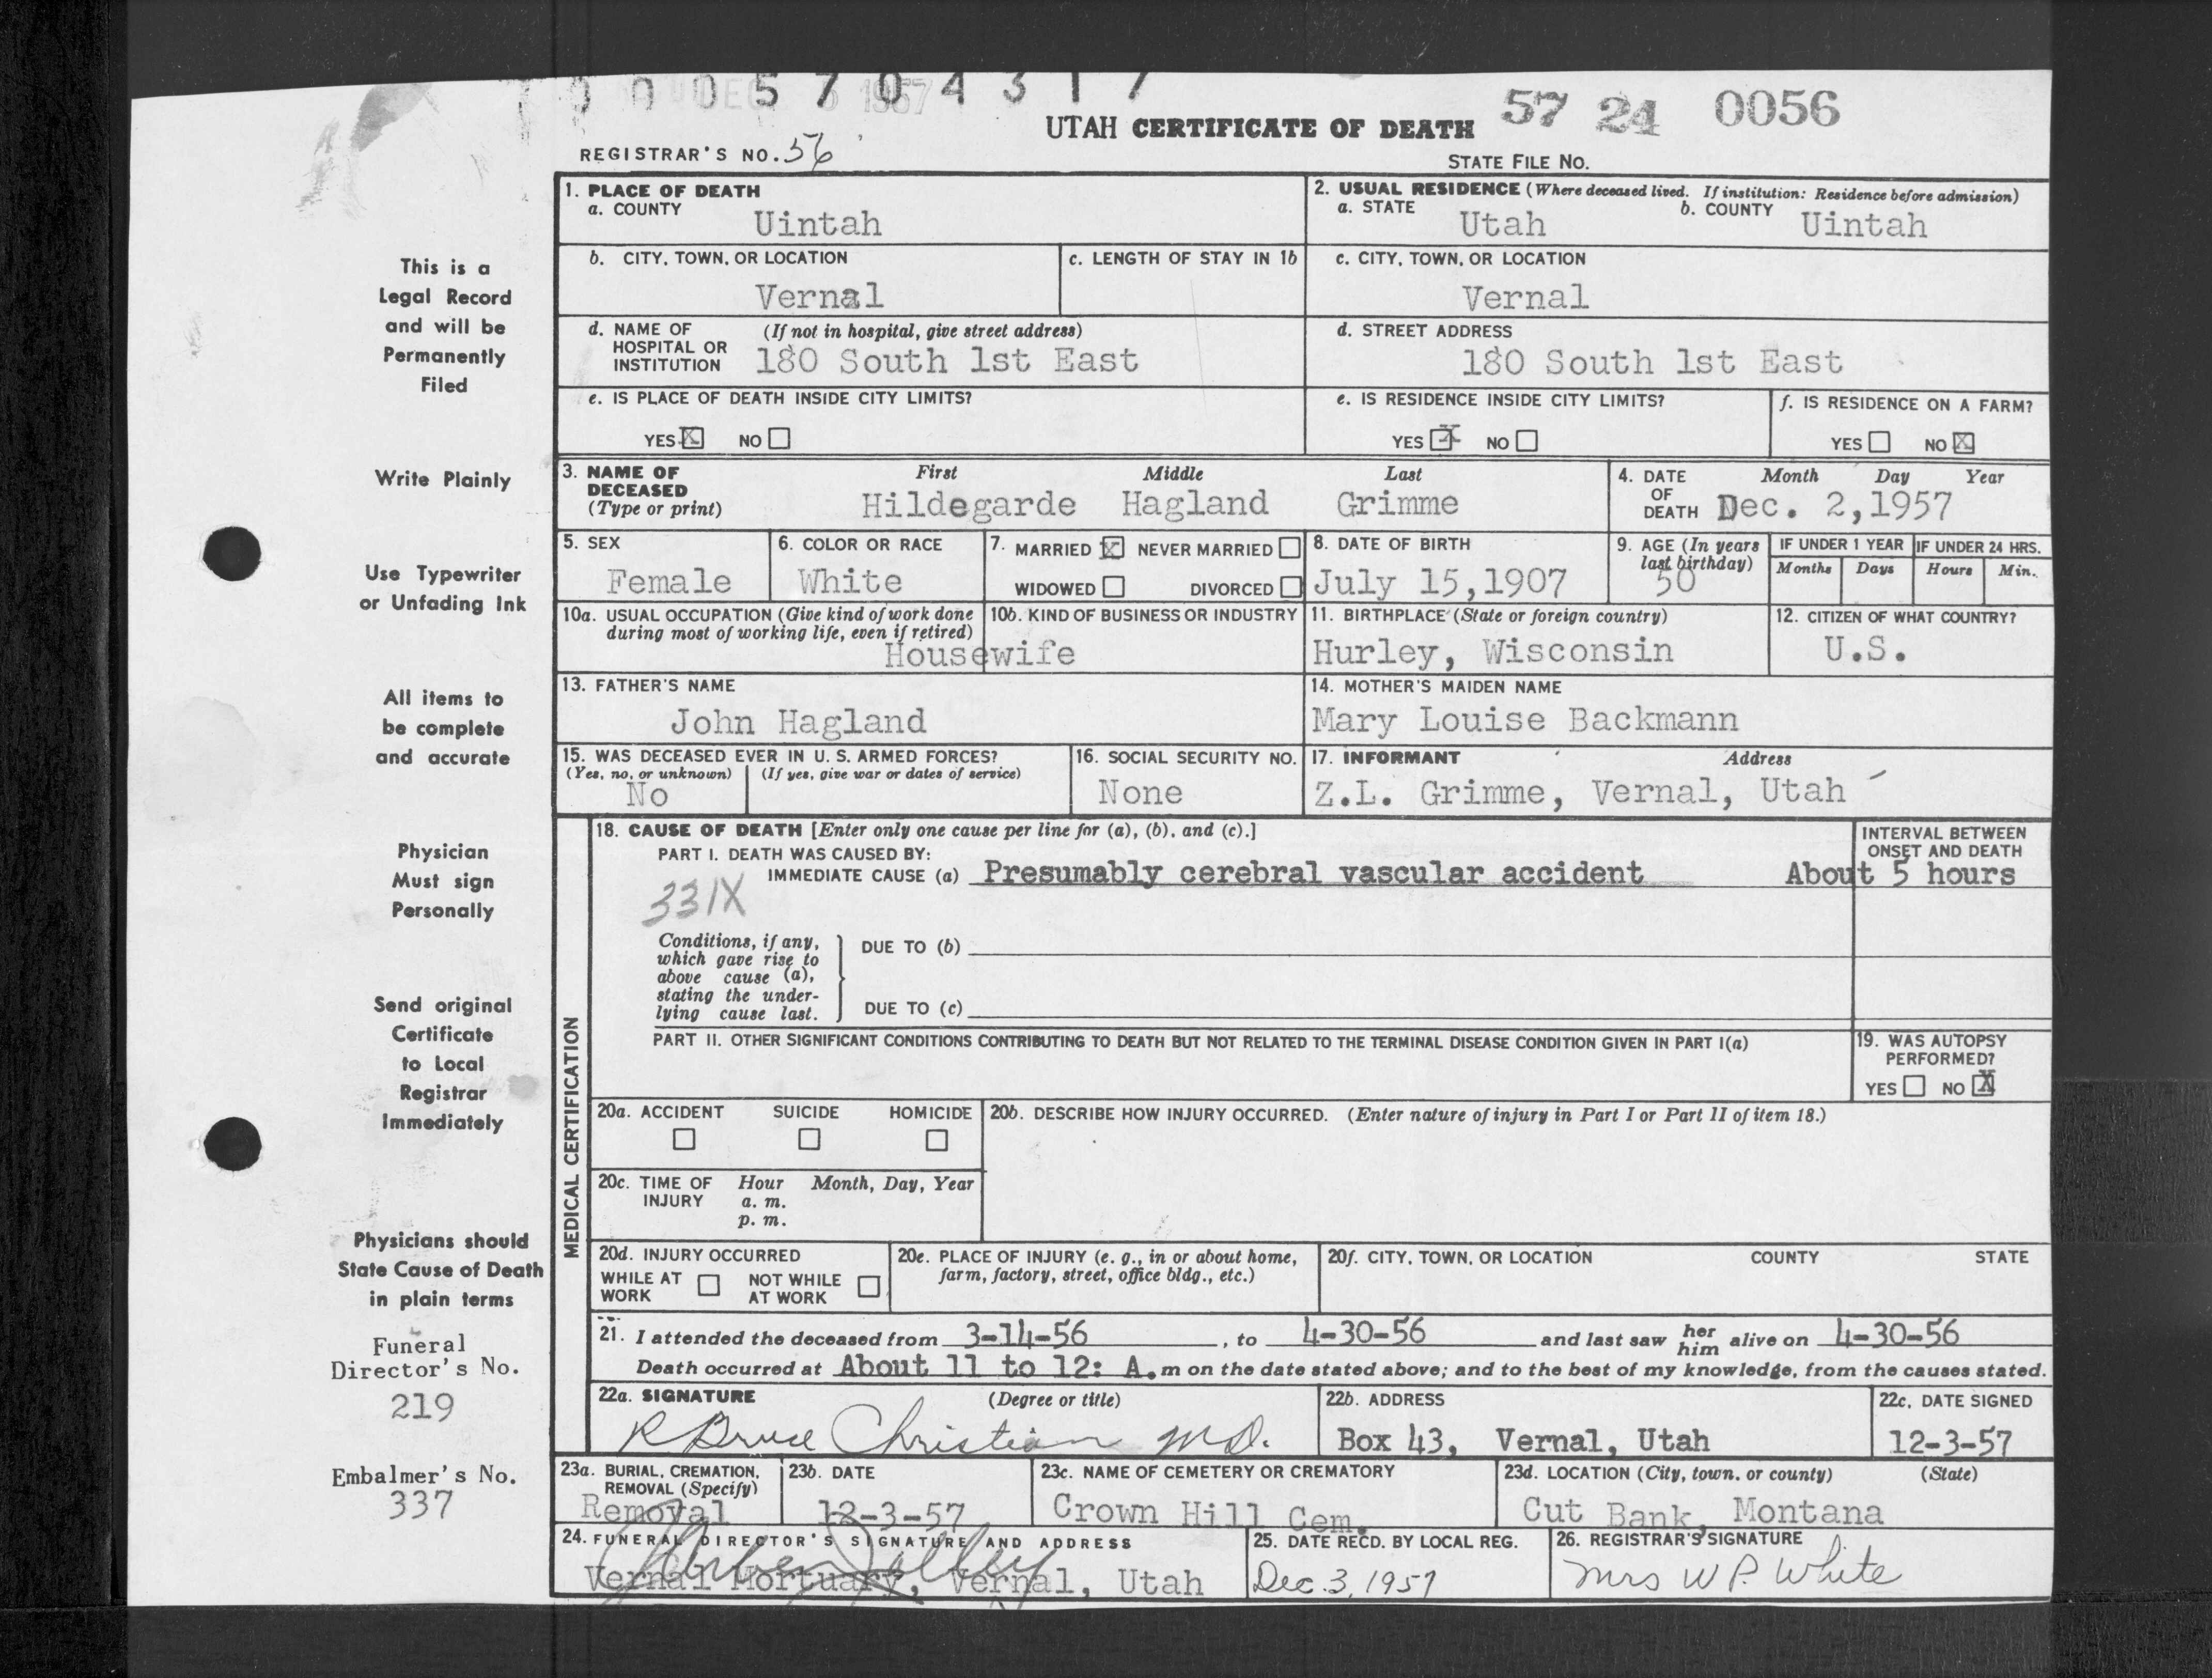 0 0 0 5 7 0 4 3 1 7
57 24 0056
UTAH CERTIFICATE OF DEATH
REGISTRAR'S NO. 56
STATE FILE NO.
This is a
Legal Record
and will be
Permanently
Filed
Write Plainly
Use Typewriter
or Unfading Ink
All items to
be complete
and accurate
Physician
Must sign
Personally
Send original
Certificate
to Local
Registrar
Immediately
Physicians should
State Cause of Death
in plain terms
Funeral
Director's No.
219
Embalmer's No.
337
1. PLACE OF DEATH
a. COUNTY
Uintah
2. USUAL RESIDENCE (Where deceased lived. If institution: Residence before admission)
a. STATE
Utah
b. COUNTY
Uintah
b. CITY, TOWN, OR LOCATION
Vernal
c. LENGTH OF STAY IN 1b
c. CITY, TOWN, OR LOCATION
Vernal
d. NAME OF (If not in hospital, give street address)
HOSPITAL OR
INSTITUTION
180 South 1st East
d. STREET ADDRESS
180 South 1st East
e. IS PLACE OF DEATH INSIDE CITY LIMITS?
YES X NO
e. IS RESIDENCE INSIDE CITY LIMITS?
YES X NO
f. IS RESIDENCE ON A FARM?
YES NO X
3. NAME OF
DECEASED
(Type or print)
First Middle Last
Hildegarde Hagland Grimme
4. DATE
OF
DEATH
Month Day Year
Dec. 2,1957
5. SEX
Female
6. COLOR OR RACE
White
7. MARRIED X NEVER MARRIED
WIDOWED DIVORCED
8. DATE OF BIRTH
July 15,1907
9. AGE (In years
last birthday)
50
IF UNDER 1 YEAR
Months Days
IF UNDER 24 HRS.
Hours Min.
10a. USUAL OCCUPATION (Give kind of work done
during most of working life, even if retired)
10b. KIND OF BUSINESS OR INDUSTRY
Housewife
11. BIRTHPLACE (State or foreign country)
Hurley, Wisconsin
12. CITIZEN OF WHAT COUNTRY?
U.S.
13. FATHER'S NAME
John Hagland
14. MOTHER'S MAIDEN NAME
Mary Louise Backmann
15. WAS DECEASED EVER IN U. S. ARMED FORCES?
(Yes, no, or unknown) (If yes, give war or dates of service)
No
16. SOCIAL SECURITY NO.
None
17. INFORMANT Address
Z.L. Grimme, Vernal, Utah
MEDICAL CERTIFICATION
18. CAUSE OF DEATH [Enter only one cause per line for (a), (b), and (c).]
INTERVAL BETWEEN
ONSET AND DEATH
PART I. DEATH WAS CAUSED BY:
IMMEDIATE CAUSE (a) Presumably cerebral vascular accident About 5 hours
331X
Conditions, if any,
which gave rise to
above cause (a),
stating the under-
lying cause last.
DUE TO (b)
DUE TO (c)
PART II. OTHER SIGNIFICANT CONDITIONS CONTRIBUTING TO DEATH BUT NOT RELATED TO THE TERMINAL DISEASE CONDITION GIVEN IN PART I(a)
19. WAS AUTOPSY
PERFORMED?
YES NO X
20a. ACCIDENT SUICIDE HOMICIDE
20b. DESCRIBE HOW INJURY OCCURRED. (Enter nature of injury in Part I or Part II of item 18.)
20c. TIME OF Hour Month, Day, Year
INJURY a. m.
p. m.
20d. INJURY OCCURRED
WHILE AT NOT WHILE
WORK AT WORK
20e. PLACE OF INJURY (e. g., in or about home,
farm, factory, street, office bldg., etc.)
20f. CITY, TOWN, OR LOCATION COUNTY STATE
21. I attended the deceased from 3-14-56, to 4-30-56 and last saw her him alive on 4-30-56
Death occurred at About 11 to 12: A.m on the date stated above; and to the best of my knowledge, from the causes stated.
22a. SIGNATURE (Degree or title)
R Bruce Christian M.D.
22b. ADDRESS
Box 43, Vernal, Utah
22c. DATE SIGNED
12-3-57
23a. BURIAL, CREMATION,
REMOVAL (Specify)
Removal
23b. DATE
12-3-57
23c. NAME OF CEMETERY OR CREMATORY
Crown Hill Cem.
23d. LOCATION (City, town, or county) (State)
Cut Bank, Montana
24. FUNERAL DIRECTOR'S SIGNATURE AND ADDRESS
Vernal Mortuary, Vernal, Utah
25. DATE RECD. BY LOCAL REG.
Dec. 3, 1957
26. REGISTRAR'S SIGNATURE
Mrs W P. White